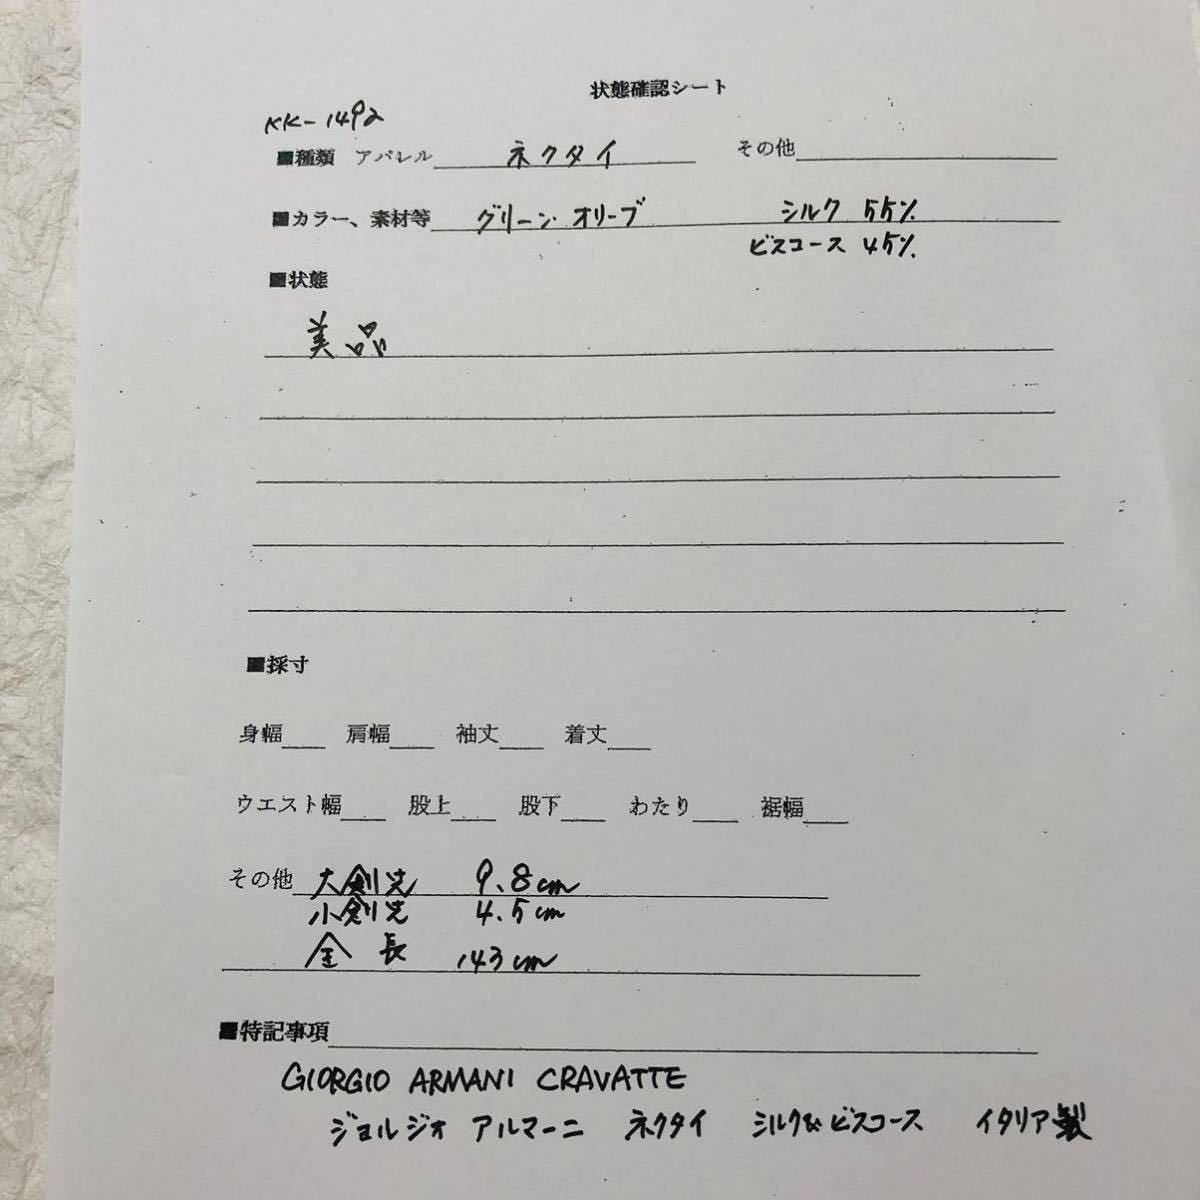 状態確認シート
KK-1492
■種類 アパレル ネクタイ その他
■カラー、素材等 グリーン・オリーブ シルク 55%
ビスコース 45%
■状態
美品
■採寸
身幅 肩幅 袖丈 着丈
ウエスト幅 股上 股下 わたり 裾幅
その他 大剣先 9.8cm
小剣先 4.5cm
全長 143cm
■特記事項
GIORGIO ARMANI CRAVATTE
ジョルジオ アルマーニ ネクタイ シルク&ビスコース イタリア製